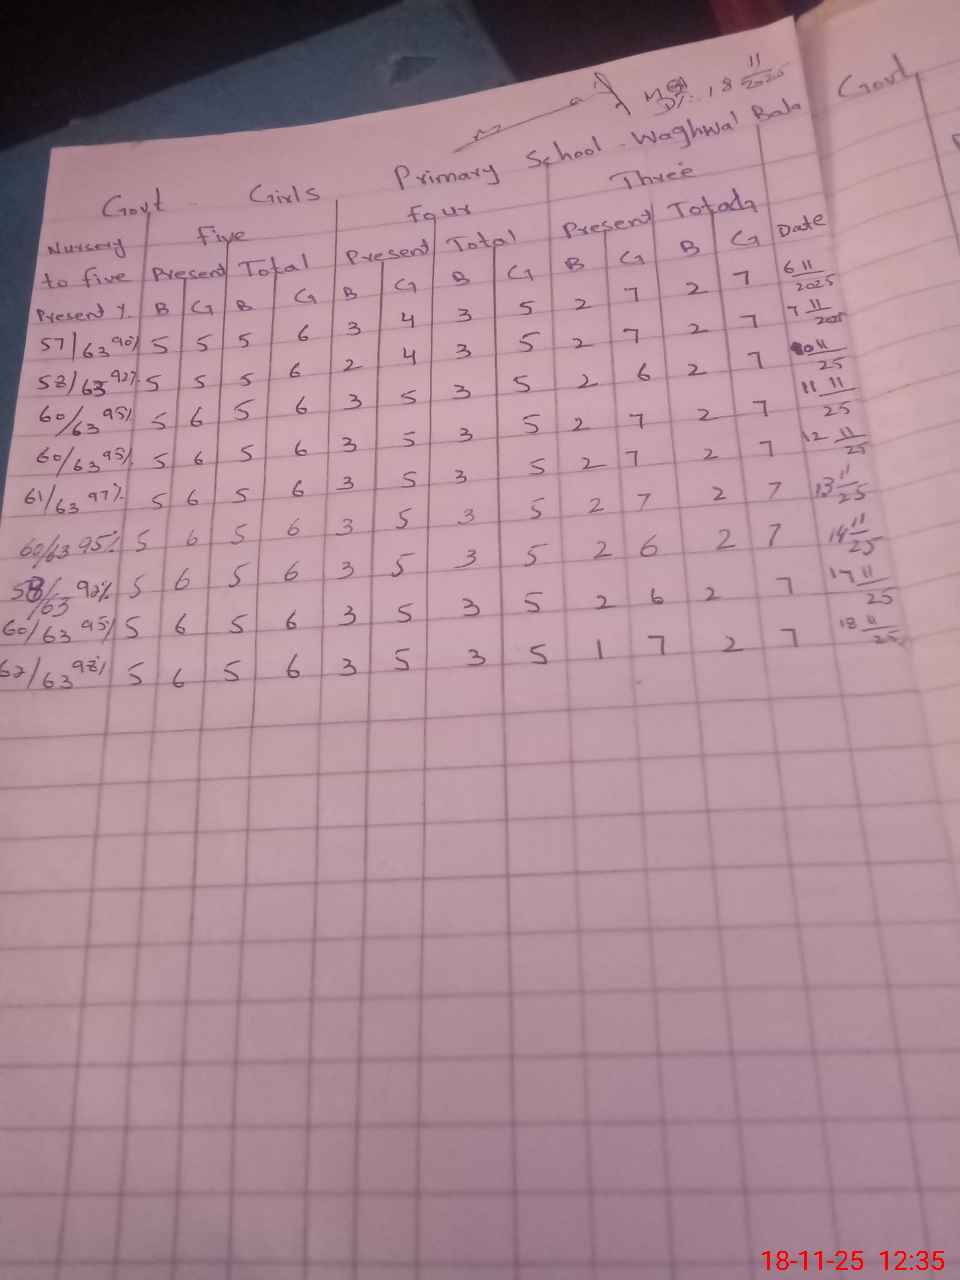 18 11/2025
Govt. Girls Primary School. Waghwal Bala Govt
Nursery Five Four Three
to five Present Total Present Total Present Total Date
Present % B G B G B G B G B G B G
57/63 90% 5 5 5 6 3 4 3 5 2 7 2 7 6 11/2025
58/63 92% 5 5 5 6 2 4 3 5 2 7 2 7 7 11/2025
60/63 95% 5 6 5 6 3 5 3 5 2 6 2 7 10 11/25
60/63 95% 5 6 5 6 3 5 3 5 2 7 2 7 11 11/25
61/63 97% 5 6 5 6 3 5 3 5 2 7 2 7 12 11/25
60/63 95% 5 6 5 6 3 5 3 5 2 7 2 7 13 11/25
58/63 92% 5 6 5 6 3 5 3 5 2 6 2 7 14 11/25
60/63 95% 5 6 5 6 3 5 3 5 2 6 2 7 17 11/25
62/63 98% 5 6 5 6 3 5 3 5 1 7 2 7 18 11/25
18-11-25 12:35